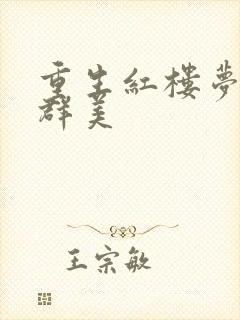 重生紅樓夢
群美
王宗敏